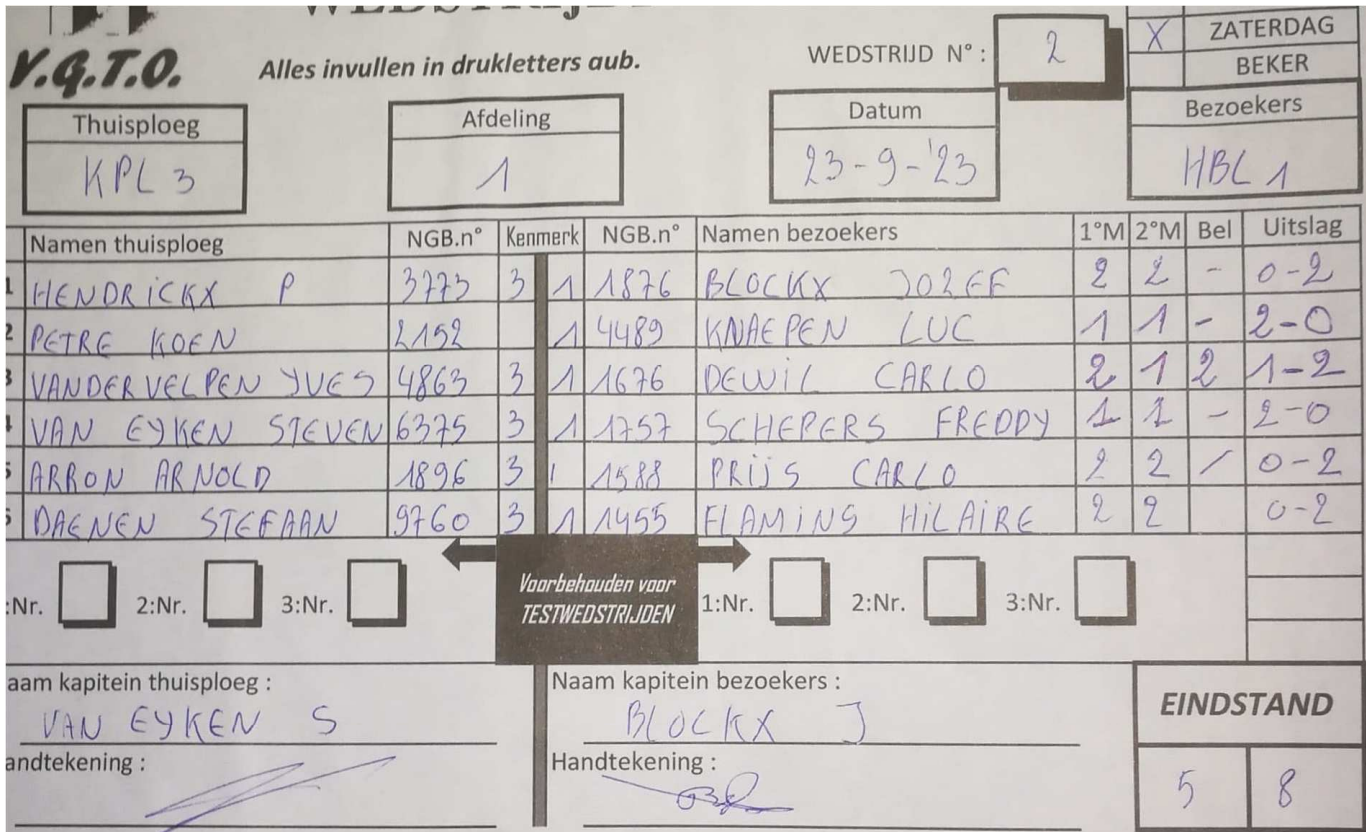 V.G.T.O.
Alles invullen in drukletters aub.
WEDSTRIJD N° : 2
X ZATERDAG
BEKER
Thuisploeg Afdeling Datum Bezoekers
KPL 3 1 23-9-'23 HBL 1
Namen thuisploeg NGB.n° Kenmerk NGB.n° Namen bezoekers 1°M 2°M Bel Uitslag
1 HENDRiCKX P 3773 3 1 1876 BLOCKX JOZEF 2 2 - 0-2
2 PETRE KOEN 2152 1 4489 KNAEPEN LUC 1 1 - 2-0
3 VANDERVELPEN YVES 4863 3 1 1676 DEWiL CARLO 2 1 2 1-2
4 VAN EYKEN STEVEN 6375 3 1 1757 SCHEPERS FREDDY 1 1 - 2-0
5 ARRON ARNOLD 1896 3 1 1588 PRiJS CARLO 2 2 / 0-2
DAENEN STEFAAN 9760 3 1 1455 FLAMiNG HiLAiRE 2 2 0-2
:Nr. 2:Nr. 3:Nr. Voorbehouden voor TESTWEDSTRIJDEN 1:Nr. 2:Nr. 3:Nr.
aam kapitein thuisploeg : Naam kapitein bezoekers : EINDSTAND
VAN EYKEN S BLOCKX J
andtekening : Handtekening : 5 8